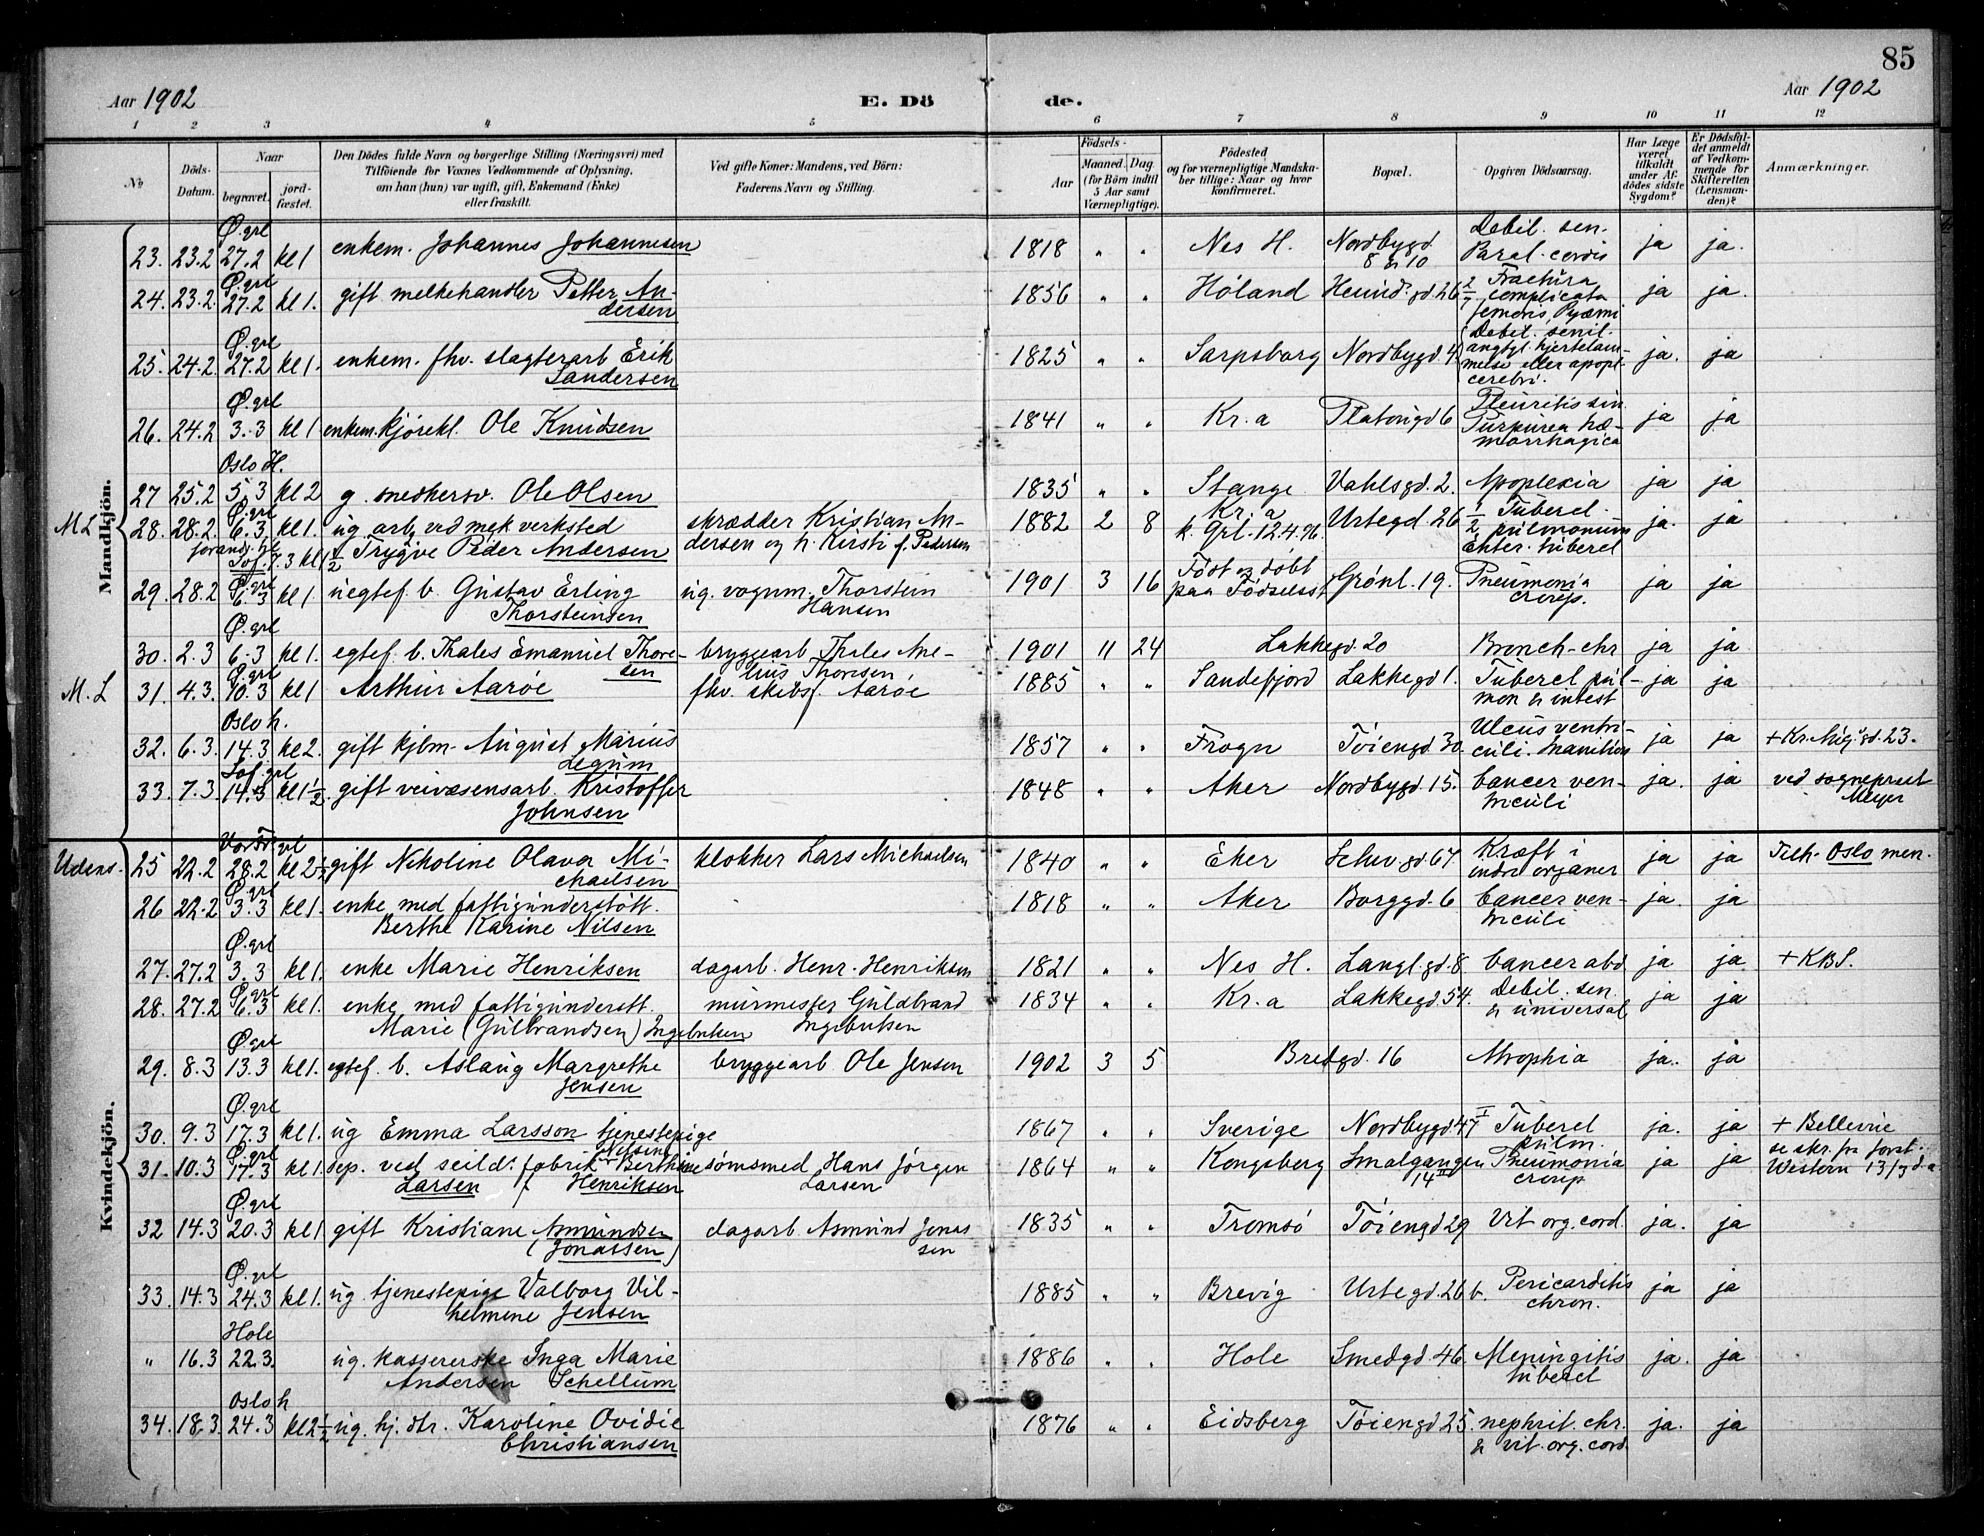 85
Aar 1902
E. Dö de.
Aar 1902
1 2 3 4 5 6 7 8 9 10 11 12
No
Döds-Datum.
Naar
begravet.
jordfæstet.
Den Dödes fulde Navn og borgerlige Stilling (Næringsvei) med
Tilföiende for Voxnes Vedkommende af Oplysning,
om han (hun) var ugift, gift, Enkemand (Enke)
eller fraskilt.
Ved gifte Koner: Mandens, ved Börn:
Faderens Navn og Stilling.
Födsels-
Aar
Maaned. Dag
(for Börn indtil
5 Aar samt
Værnepligtige).
Födested
og for værnepligtige Mandska-
ber tillige: Naar og hvor
konfirmeret.
Bopæl.
Opgiven Dödsaarsag.
Har Læge
været
tilkaldt
under Af-
dödes sidste
Sygdom?
Er Dödsfal-
det anmeldt
af Vedkom-
mende for
Skifteretten
(Lensman-
den)?
Anmærkninger.
Mandkjön.
Ø.grl Debil. sen.
23. 23.2 27.2 kl 1 enkem. Johannes Johannesen 1818 " " Nes H. Nordbygd. 8 & 10 Paral. cordis ja ja.
Ø.grl Fractura
24. 23.2. 27.2 kl 1. gift melkehandler Petter An- 1856 " " Høland Heimd.gd. 26 complicata ja ja.
dersen femoris, Pyæmi
Ø.grl Debil. senil.
25. 24.2. 27.2 kl 1. enkem. fhv. slagterarb Erik 1825 " " Sarpsborg Nordbygd. 4 hjertelam- ja. ja
Sandersen melse eller apopl.
cerebri.
Ø.grl Pleuritis sin.
26. 24.2 3.3 kl 1 enkem. kjørekl. Ole Knudsen 1841 " " Kr.a Platougd 6 Purpurea hæ- ja ja
morrhagica
Oslo H.
27 25.2 5.3 kl 2 g. snedkersv. Ole Olsen 1835 " " Stange Vahlsgd. 2. Apoplexia ja ja
M L Ø.grl Kr.a Tubercl.
28. 28.2. 6.3. kl 1. ug. arb. ved mek verksted skrædder Kristian An- 1882 2 8 k. Grl. 12.4.96 Urtegd. 26 pulmonum ja. ja
Trygve Peder Andersen dersen og h. Kersti f. Pedersen & inter. tubercl
Ø.grl Født og døbt
29. 28.2 6.3 kl 1 uegtef. b. Gustav Erling ug. vognm. Thorstein 1901 3 16 paa Fødselsst Grønl. 19. Pneumonia ja ja
Thorsteinsen Hansen croup.
Ø.grl
30. 2.3 6.3 kl 1. egtef. b. Thales Emanuel Thore- bryggearb Thales Ane- 1901 11 24 Lakkegd 20 Bronch-chr ja ja
sen lius Thoresen
Ø.grl
M.L 31. 4.3. 10.3 kl 1 Arthur Aarøe fhv. skibsf. Aarøe 1885 " " Sandefjord Lakkegd 1. Tubercl pul- ja ja
mon & intest
Oslo h. Ulcus ventri-
32. 6.3. 14.3 kl 2. gift kjbm. August Marius 1857 " " Frogn Tøiengd 30. culi. Inanition ja ja + Kr. Aug.gd. 23.
Legum
Tøf. grl
33. 7.3. 14.3 kl 1½ gift veivæsensarb. Kristoffer 1848 " " Aker Nordbygd 15. Cancer ven- ja. ja ved sogneprest
Johnsen triculi Meyer
Kvindekjön.
Vor Fr.grl Kræft i
Udens. 25 22.2 28.2 kl 2½ gift Nikoline Olava Mi- klokker Lars Michaelsen 1840 " " Eker Schw.gd 67. indre organer ja ja Tilh. Oslo men.
chaelsen
Ø.grl
26 22.2 3.3 kl 1. enke med fattigunderstøtt. 1818 " " Aker Borggd. 6 Cancer ven- ja. ja
Berthe Karine Nilsen triculi
Ø.grl
27. 27.2 3.3 kl 1. enke Marie Henriksen dagarb. Henr. Henriksen 1821 " " Nes H. Langl.gd. 8. Cancer abd ja ja + KBS.
Ø.grl Debil. sen.
28. 27.2 6.3 kl 1. enke med fattigunderstt. murmester Guldbrand 1834 " " Kr.a Lakkegd. 54. & universal ja ja
Marie (Gulbrandsen) Ingebretsen Ingebretsen
Ø.grl
29. 8.3 13.3 kl 1. egtef. b. Aslaug Margrethe bryggearb Ole Jensen 1902 3 5 Bredgd. 16 Atrophia ja. ja
Jensen
Ø.grl
30. 9.3 17.3 kl 1. ug Emma Larsson tjenestepige 1867 " " Sverige Nordbygd 47 I Tubercl ja. ja + Bellevue
pulm.
Ø.grl se skr. fra forst.
31. 10.3 17.3 kl 1. sep. ved seild. fabrik Berthine Nilsine sømsmed Hans Jørgen 1864 " " Kongsberg Smalgangen 14 II Pneumonia ja ja Western 13/3 d.a
Larsen f. Henriksen Larsen croup
Ø.grl
32 14.3 20.3 kl 1. gift Kristiane Asmundsen dagarb Asmund Jonas 1835 " " Tromsø Tøiengd 29 Vit org. cord. ja. ja
(Jonassen) sen
Ø.grl
33. 14.3 24.3 kl 1. ug. tjenestepige Valborg Vil- 1885 " " Brevig Urtegd. 26 b. Pericarditis ja ja
helmine Jensen chron.
Hole
" 16.3 22.3. ug. kassererske Inga Marie 1886 " " Hole Smedgd. 46. Meningitis ja. ja
Andersen Schellum tubercl
Oslo h
34. 18.3. 24.3 kl 2½ ug. hj. dtr. Karoline Ovidie 1876 " " Eidsberg Tøiengd 25. nephrit. chr. ja. ja
Christiansen & vit. org. cord.